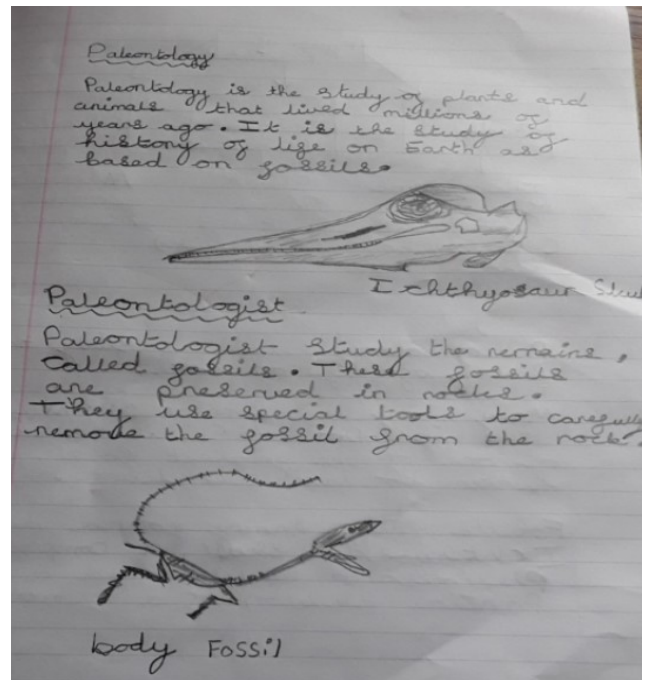 Paleontology
Paleontology is the study of plants and
animals that lived millions of
years ago. It is the study of
history of life on Earth as
based on fossils.
Ichthyosaur
Paleontologist
Paleontologist study the remains,
called fossils. These fossils
are preserved in rocks.
They use special tools to carefully
remove the fossil from the rock.
body Fossil